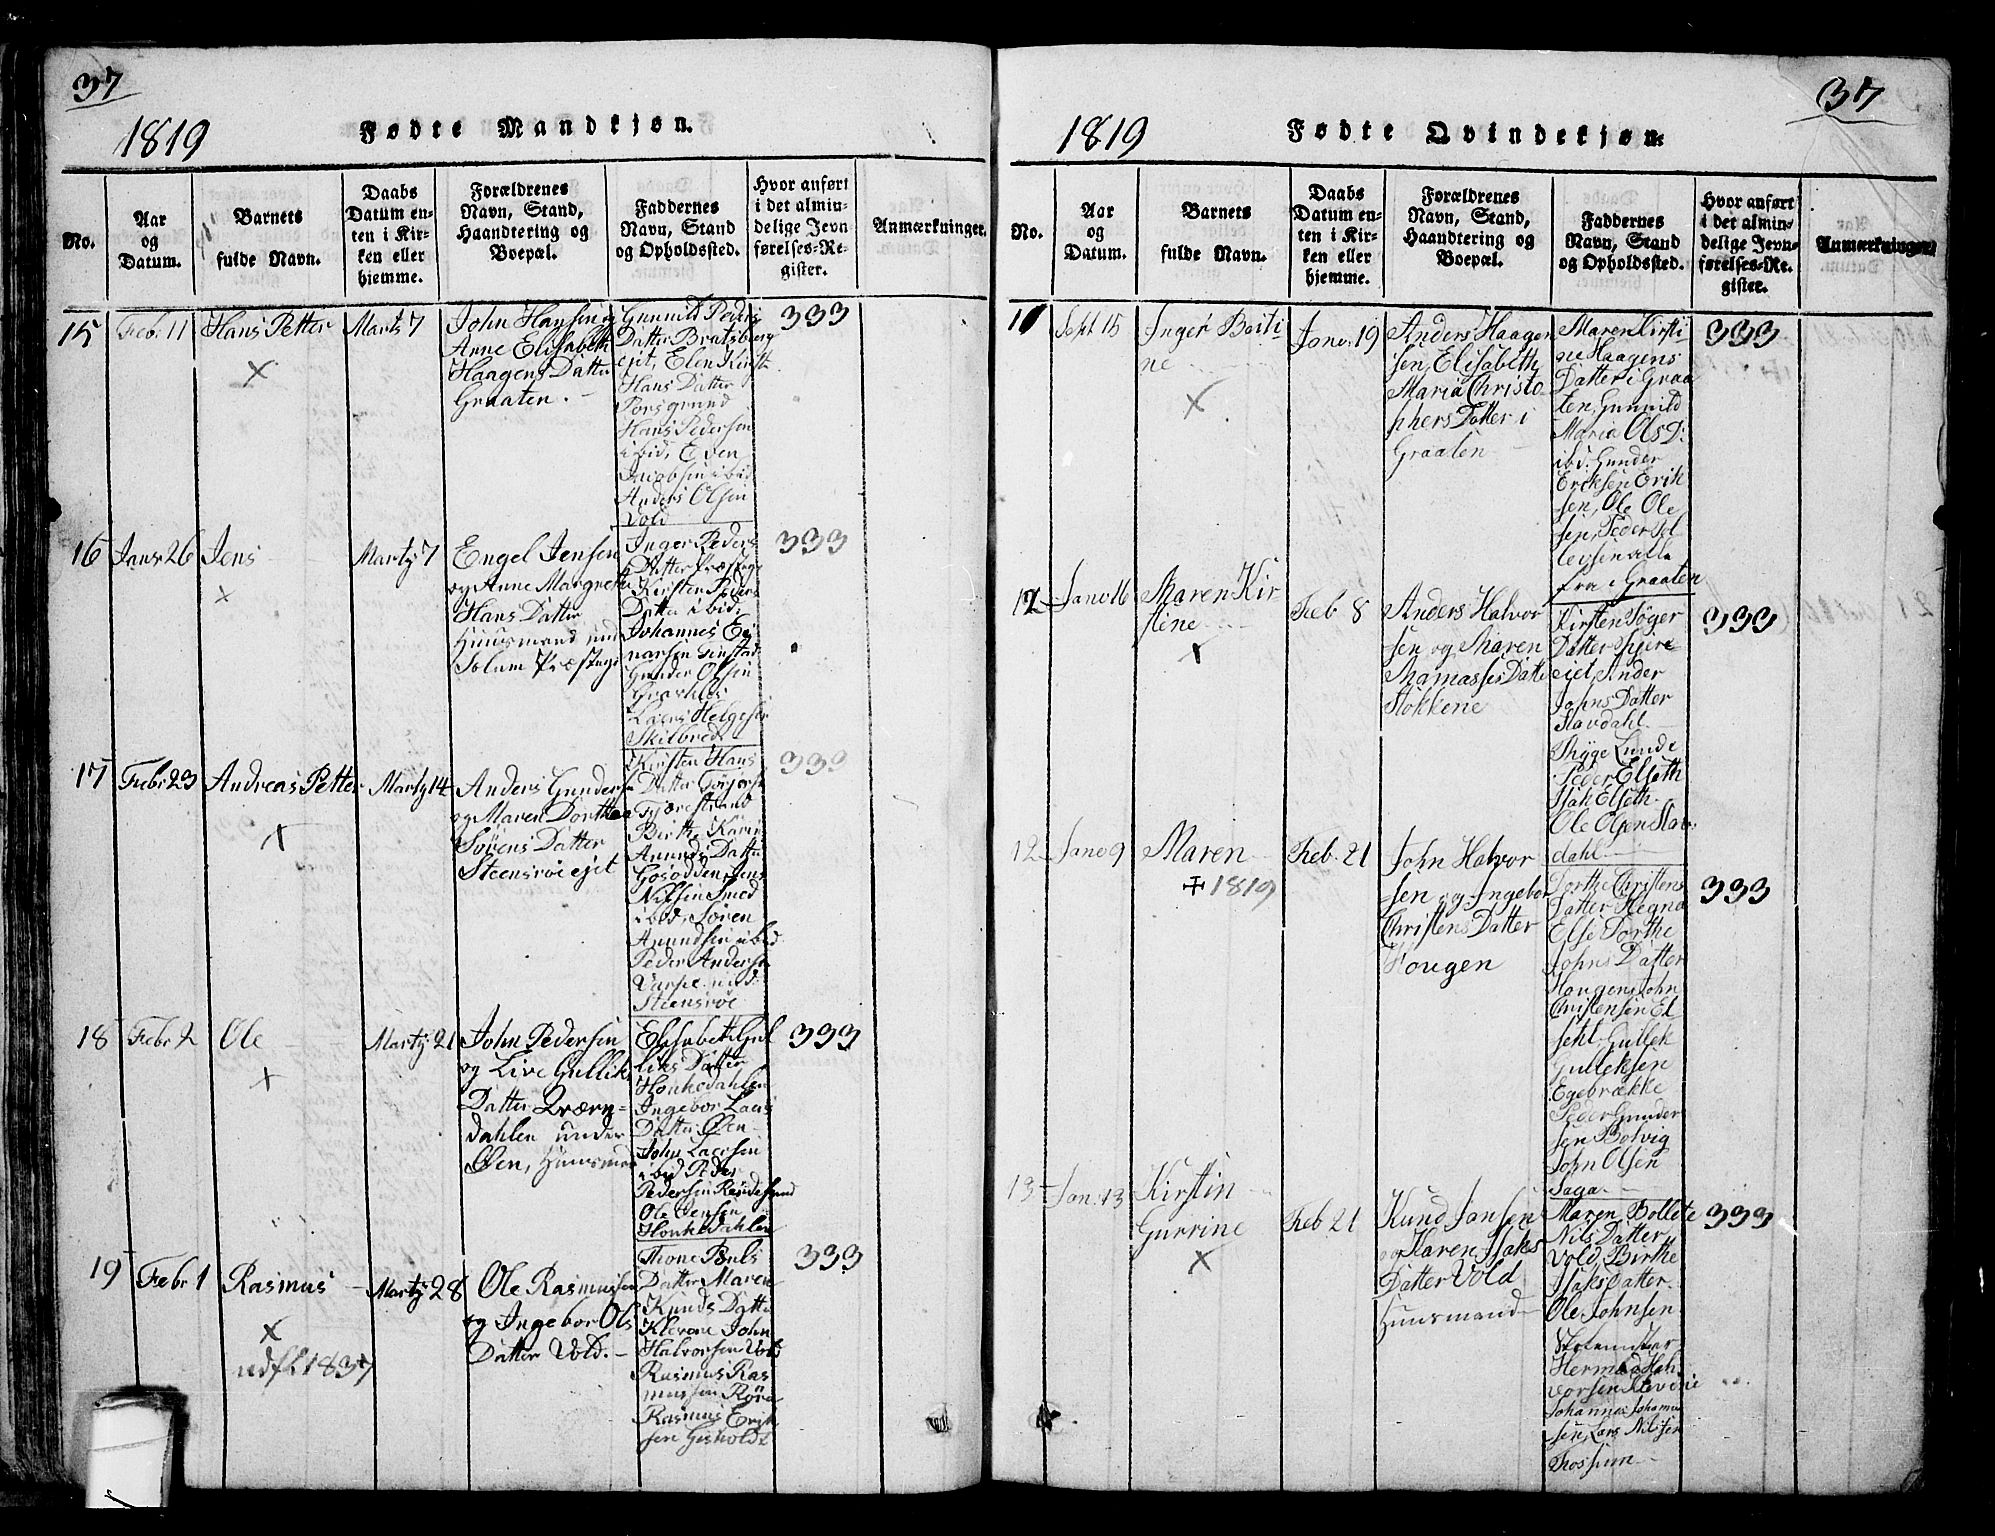 37
1819
Fødte Mandkjøn.
No.
Aar
og
Datum.
Barnets
fulde Navn.
Daabs
Datum en-
ten i Kir-
ken eller
hjemme.
Forældrenes
Navn, Stand,
Haandtering og
Boepæl.
Faddernes
Navn, Stand
og Opholdssted.
Hvor anført
i det almin-
delige Jevn
førelses-Re-
gister.
Anmærkninger.
15
Feb: 11
Hans Petter
×
Marts 7
John Hansen og
Anne Elisabeth
Haagens Datter
Graaten.
Gunnild Peders
Datter Bratsberg
ejet, Elen Kirst
Hans Datter
Porsgrund
Hans Pedersen
ibid, Even
Jacobsen ibid
Anders Olsen
Vold
333
16
Janr 26
Jens
×
Marty 7
Engel Jensen
og Anne Margrethe
Hans Datter
Huusmand und
Solum Præsteg:
Inger Peders
Datter Præsteg:
Kirsten Peders
Datter ibid:
Johannes Ei
narsen
Gunder Olsen
Graaten
Laers Helgesen
Skilbred
333
17
Febr 23
Andreas Petter
×
Marty 14
Anders Gunders
og Maren Dorthea
Sørens Datter
Steensrøi ejet
Kirsten Hans
Datter
Fjærestrand
Birthe Karin
Anunds Datter
Jens
Nilsen Smed
ibid, Søren
Anundsen ibid
Peder Anders
und
Steensrøe
333
18
Febr 2
Ole
×
Marty 21
John Pedersen
og Live Gulliks
Datter Qværn=
dahlen under
Øen, Huusmand
Elisabeth Gul
liks Datter
Honkedahlen
Ingebor Laers
Datter Øen
John Laersen
ibid Peder
Pedersen
Ole Jensen
Honkedahlen
333
19
Febr 1
Rasmus
×
udfl 1837
Marty 28
Ole Rasmussen
og Ingebor Ols
Datter Vold.
Thone Pouls
Datter Maren
Knuds Datter
Klevene John
Halvorsen Vold
Rasmus Ras
mussen Røra
Rasmus Erik
sen Gisholdt
333
37
1819
Fødte Qvindekjøn.
No.
Aar
og
Datum.
Barnets
fulde Navn.
Daabs
Datum en-
ten i Kir-
ken eller
hjemme.
Forældrenes
Navn, Stand,
Haandtering og
Boepæl.
Faddernes
Navn, Stand
og Opholdssted.
Hvor anført
i det almin-
delige Jevn-
førelses-Re-
gister.
Anmærkninger
Sept 15
Inger Berti
ne
×
Jano. 19
Anders Haagen
sen, Elisabeth
Maria Christo
phers Datter i
Graaten
Maren Kirsti
ne Haagens
Datter i Graa
ten, Gunnild
Maria Ols D:
ibd. Gunder
Eriksen Erik
sen, Ole Ole
sen, Peder Tol
lefsen alle
fra i Graaten
333
Jano 16
Maren Kir
stine
×
Feb 8
Anders Halvor
sen og Maren
Thamasses Datte
Stokkene
Kirsten
Datter
ejet, Ander
Johns Datter
Slavdahl
Lunde
Peder Elseth
Isak Elseth
Ole Olsen Slav
dahl
333
12
Jano 9
Maren
✝ 1819
Feb. 21
John Halvor
sen og Ingebor
Christens Datter
Hougen
Dorthe Christens
Datter Hegna
Else Dorthe
Johns Datter
Hougen, John
Christensen El
seht Gullek
Gulleksen
Egebrække
Peder Gunder
sen Bolvig
John Olsen
Saga
333
13
Jan. 13
Kirstin
Gurrine
×
Feb. 21
Knud Jansen
og Karen Isaks
Datter Vold
Huusmand
Maren Bollete
Nils Datter
Vold, Birthe
Isaks Datter
Ole Johnsen
Herm Hal
vorsen Klevene
Johannes Johannes
sen, Lars Nilsen
Fossum
333